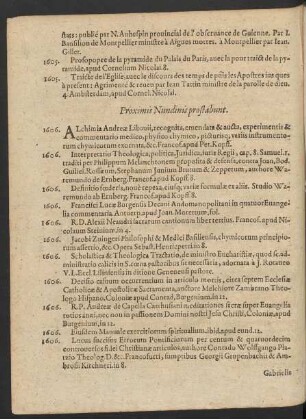 stats: publié par N. Aubespin provincial de l'observance de Guienne. Par I.
Bansillon de Montpellier ministre à Aigues mortes. à Montpellier par Iean
Gillet.
1605. Prosopopee de la pyramide du Palais du Paris, avec la pourtraict de la py-
ramide, apud Cornelium Nicolai. 8.
1605. Traicté de l'Eglise, avec le discours des temps depuis les Apostres iusques
à present: Agrimenté & reueu par Iean Taffin ministre de la parolle de dieu.
4. Amsterdam, apud Cornel. Nicolai.
Proximis Nundinis prostabunt.
1606. Alchimia Andreæ Libavii, recognita, emendata & aucta, experimentis &
commentario medico, physico chymico, picturisq, variis instrumento-
rum chymicorum exornata, &c. Francof. apud Pet. Kopff.
1606. Interpretatio Theologica, politica, Iuridica, iuris Regii, cap. 8. Samuel. r,
traditi per Philippum Melanchtonem proposita & defensa, contra Ioan, Bod.
Guiliel. Rossæum, Stephannum Iunium Brutum & Zepperum, authore Wa-
remundo ab Ernberg. Francof. apud Kopff 8.
1606. Definitio foederis, nouè repetita, eiusq, variæ formulæ ex aliis. Studio Wa-
remundo ab Ernberg. Francof. apud Kopff. 8.
1606. Francisci Lucæ Burgensis Decani Audomaropolitani in quatuor Euangelia
commentaria Antverp. apud Ioan. Moretum, fol.
1606. R. D. Alexii Neandri sacrarum cantionum liber tertius. Francof. apud Ni-
colaum Steinium, in 4.
1606. Iacobi Zuingeri Philosophi & Medici Basiliensis, chymicorum principio-
rum assertio, &c. Opera Sebast. Henricpetri in 8.
1606. Scholastica & Theologica Tractatio de ministro Eucharistiæ, quod se ad-
ministratio calicis in S. coena partes respiciat necessariò, adornata à I. Rotano
V. I. Eccl. Lisiniensis in ditione Genevensi pastore.
1606. Decisio casuum occurrentium in articulo mortis, circa septem Ecclesiæ
Catholicæ & Apostolicæ Sacramenta, auctore Melchiore Zamarano Theo-
logo Hispano, Coloniæ apud Conrad. Butgenium, in 12.
1606. R. P. Andreæ de Capella Carthusiani meditationes sacræ super Euangelia
totius anni, nec non in passionem Domini nostri Iesu Christi, Coloniæ, apud
Butgenium, in 12.
1606. Eiusdem Manuale exercitiorum spiritualium. ibid. apud eund. 12.
1606. Locus succisus Errorum Pontificiorum per centum & quatuordecim
controversos fidei Christianæ articulos, authore Conrado Wolffgango Pla-
tzio Theolog. D. &c. Francofurti, sumptibus Georgii Gruppenbachii & Am-
brosii Kirchneri. in 8.
Gabrielis